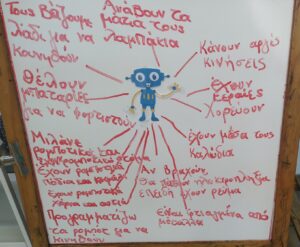 Τους βάζουμε
λάδι για να
κουνηθούν
Ανάβουν τα
μάτια τους
λαμπάκια
Κάνουν αργές
κινήσεις
Θέλουν
μπαταρίες
για να φορτιστούν
έχουν
κεραίες
Χορεύουν
έχουν μέσα τους
καλώδια
Μιλάνε
ρομποτικά και
έχουν ρομποτικά
πόδια και
έχουν ρομποτικά
χέρια και
Αν βραχούν,
θα πάθουν ηλεκτροπληξία
επειδή έχουν ρεύμα
Προγραμματίζω
τα ρομπότ για να
κινηθούν
Είναι φτιαγμένα από
μέταλλο